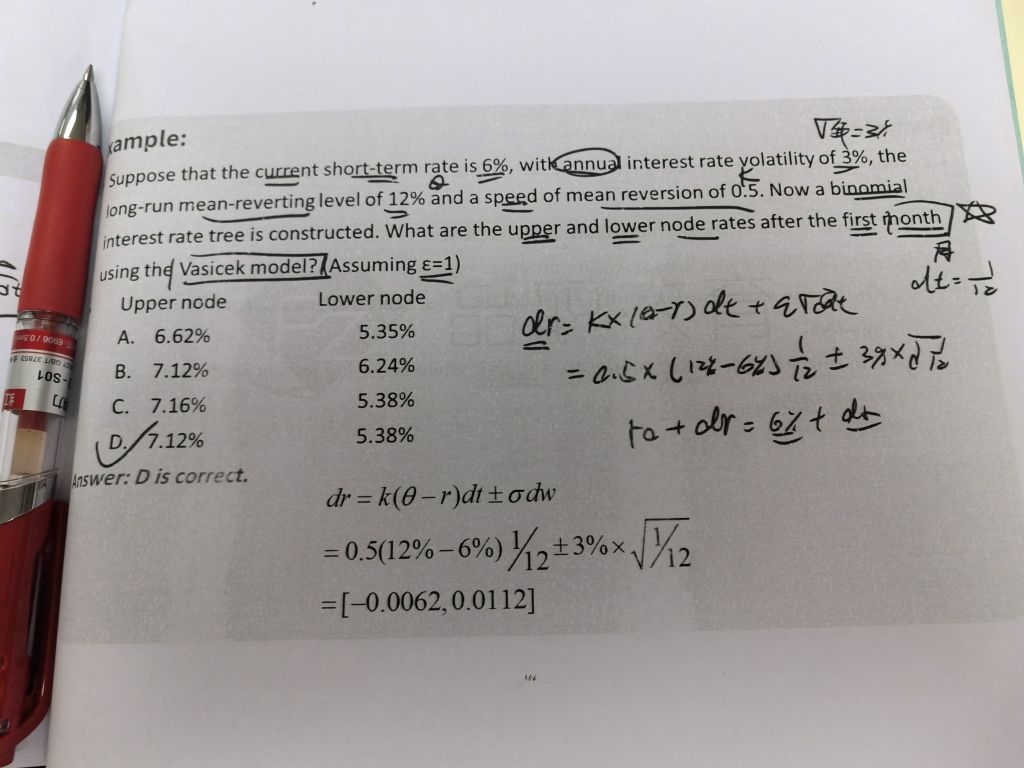 xample:
√年=3%
Suppose that the current short-term rate is 6%, with annual interest rate volatility of 3%, the
θ
K
long-run mean-reverting level of 12% and a speed of mean reversion of 0.5. Now a binomial
interest rate tree is constructed. What are the upper and lower node rates after the first month
月
using the Vasicek model? (Assuming ε=1)
dt = 1/12
Upper node Lower node
A. 6.62% 5.35%
B. 7.12% 6.24%
C. 7.16% 5.38%
D. 7.12% 5.38%
dr = K×(θ-r) dt + σ√dt
= 0.5×(12%-6%) 1/12 ± 3%×√1/12
r0 + dr = 6% + dr
Answer: D is correct.
dr = k(θ − r)dt ± σdw
= 0.5(12% − 6%) 1/12 ± 3% × √1/12
= [−0.0062, 0.0112]